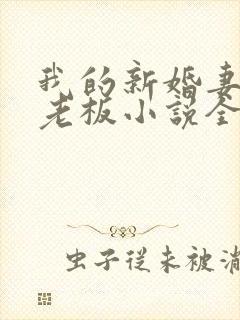 我的新婚妻
老板小说全
虫子从未被消